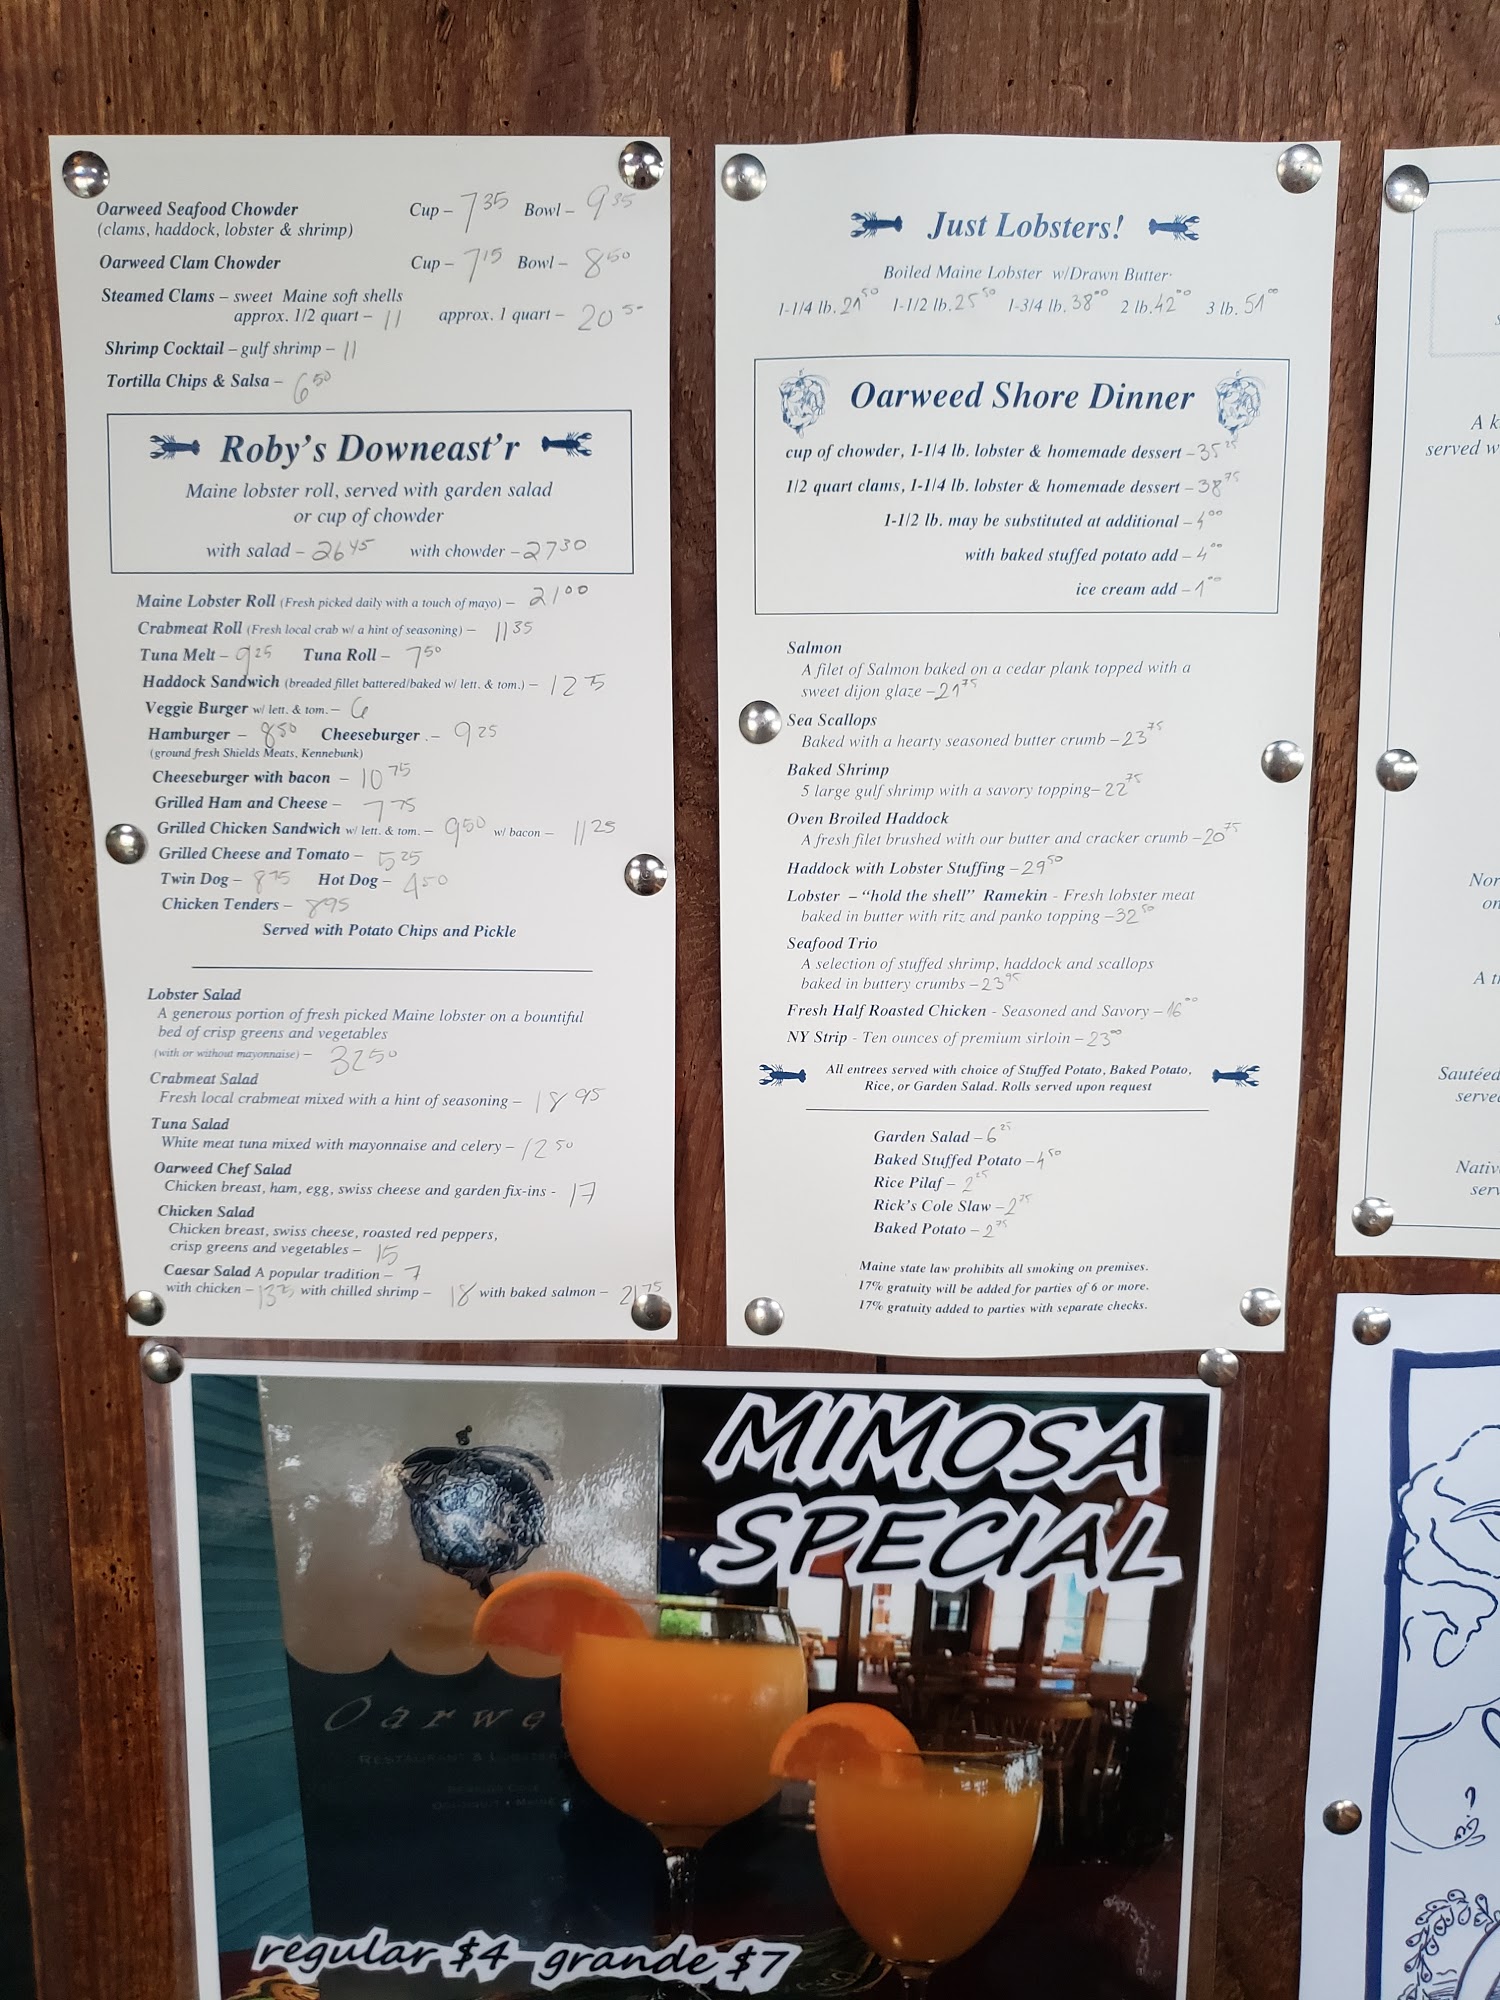 Oarweed Seafood Chowder Cup – 7 35 Bowl – 9 35
(clams, haddock, lobster & shrimp)
Oarweed Clam Chowder Cup – 7 15 Bowl – 8 50
Steamed Clams – sweet Maine soft shells
approx. 1/2 quart – 11 approx. 1 quart – 20 50
Shrimp Cocktail – gulf shrimp – 11
Tortilla Chips & Salsa – 6 50
Roby's Downeast'r
Maine lobster roll, served with garden salad
or cup of chowder
with salad – 26 45 with chowder – 27 30
Maine Lobster Roll (Fresh picked daily with a touch of mayo) – 21 00
Crabmeat Roll (Fresh local crab w/ a hint of seasoning) – 11 35
Tuna Melt – 9 25 Tuna Roll – 7 50
Haddock Sandwich (breaded fillet battered/baked w/ lett. & tom.) – 12 75
Veggie Burger w/ lett. & tom. – 6
Hamburger – 8 50 Cheeseburger . – 9 25
(ground fresh Shields Meats, Kennebunk)
Cheeseburger with bacon – 10 75
Grilled Ham and Cheese – 7 75
Grilled Chicken Sandwich w/ lett. & tom. – 9 50 w/ bacon – 11 25
Grilled Cheese and Tomato – 5 25
Twin Dog – 8 75 Hot Dog – 4 50
Chicken Tenders – 8 95
Served with Potato Chips and Pickle
Lobster Salad
A generous portion of fresh picked Maine lobster on a bountiful
bed of crisp greens and vegetables
(with or without mayonnaise) – 32 50
Crabmeat Salad
Fresh local crabmeat mixed with a hint of seasoning – 18 95
Tuna Salad
White meat tuna mixed with mayonnaise and celery – 12 50
Oarweed Chef Salad
Chicken breast, ham, egg, swiss cheese and garden fix-ins - 17
Chicken Salad
Chicken breast, swiss cheese, roasted red peppers,
crisp greens and vegetables – 15
Caesar Salad A popular tradition – 7
with chicken – 13 25 with chilled shrimp – 18 with baked salmon – 21 75
Just Lobsters!
Boiled Maine Lobster w/Drawn Butter
1-1/4 lb. 21 50 1-1/2 lb. 25 50 1-3/4 lb. 38 00 2 lb. 42 00 3 lb. 51 00
Oarweed Shore Dinner
cup of chowder, 1-1/4 lb. lobster & homemade dessert – 35 25
1/2 quart clams, 1-1/4 lb. lobster & homemade dessert – 38 75
1-1/2 lb. may be substituted at additional – 4 00
with baked stuffed potato add – 4 00
ice cream add – 1 00
Salmon
A filet of Salmon baked on a cedar plank topped with a
sweet dijon glaze – 21 75
Sea Scallops
Baked with a hearty seasoned butter crumb – 23 75
Baked Shrimp
5 large gulf shrimp with a savory topping – 22 75
Oven Broiled Haddock
A fresh filet brushed with our butter and cracker crumb – 20 75
Haddock with Lobster Stuffing – 29 50
Lobster – "hold the shell" Ramekin - Fresh lobster meat
baked in butter with ritz and panko topping – 32 50
Seafood Trio
A selection of stuffed shrimp, haddock and scallops
baked in buttery crumbs – 23 95
Fresh Half Roasted Chicken - Seasoned and Savory – 16 00
NY Strip - Ten ounces of premium sirloin – 23 00
All entrees served with choice of Stuffed Potato, Baked Potato,
Rice, or Garden Salad. Rolls served upon request
Garden Salad – 6 25
Baked Stuffed Potato – 4 50
Rice Pilaf – 2 25
Rick's Cole Slaw – 2 75
Baked Potato – 2 75
Maine state law prohibits all smoking on premises.
17% gratuity will be added for parties of 6 or more.
17% gratuity added to parties with separate checks.
A k
served w
Nor
on
A t
Sautéed
serve
Nativ
serv
MIMOSA
SPECIAL
Oarwe
RESTAURANT & LOBSTER
regular $4 grande $7